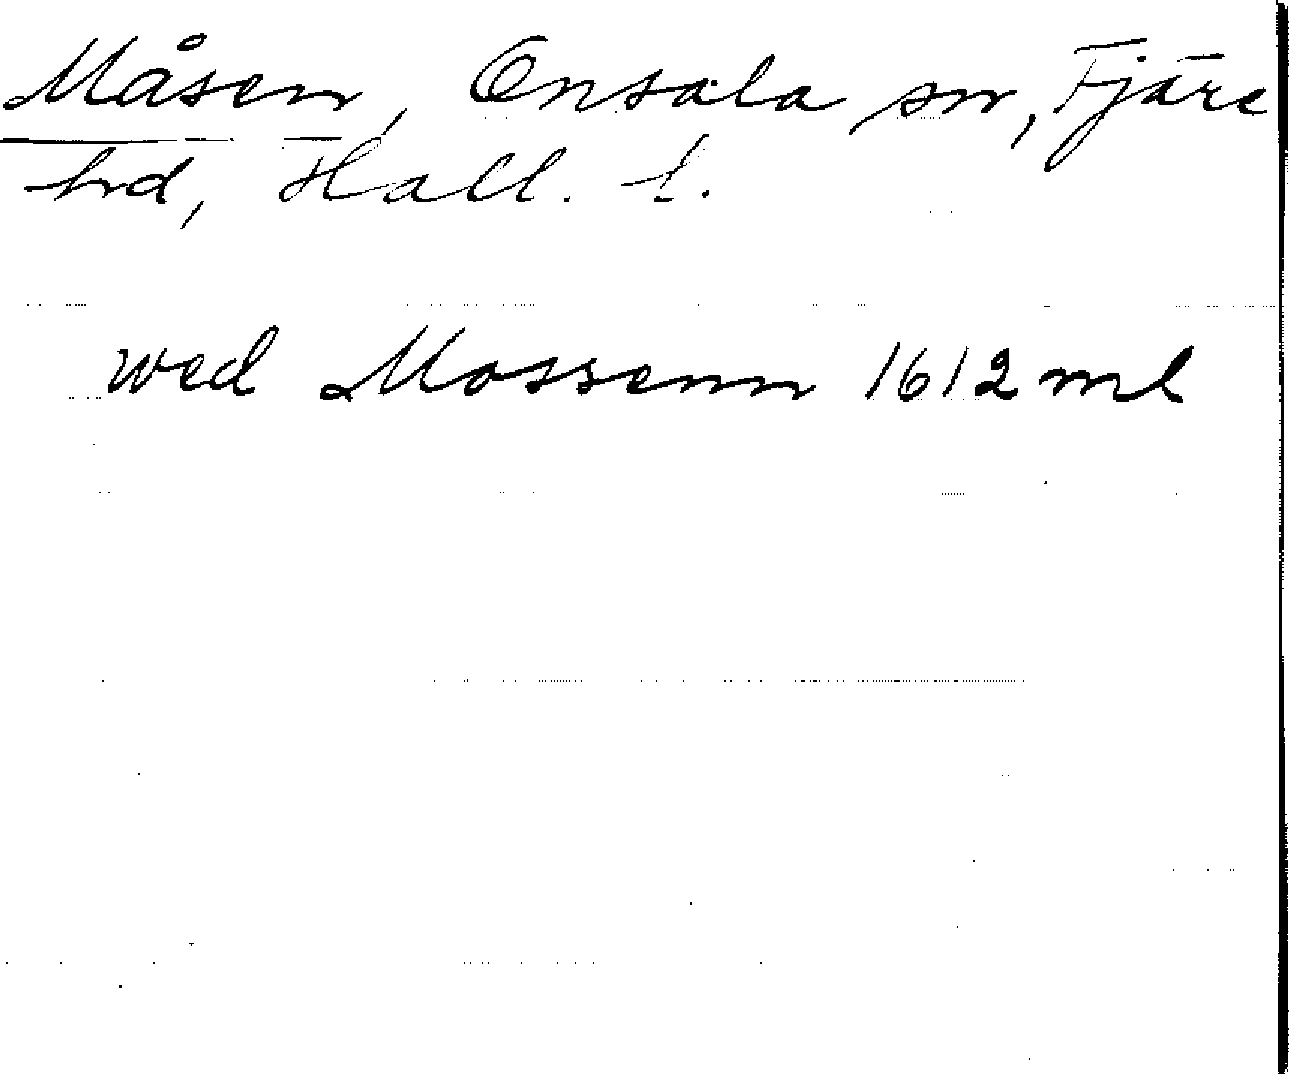 Måsen, Onsala sn, Fjäre
hd, Hall. l.
wed Mossenn 1612 ml